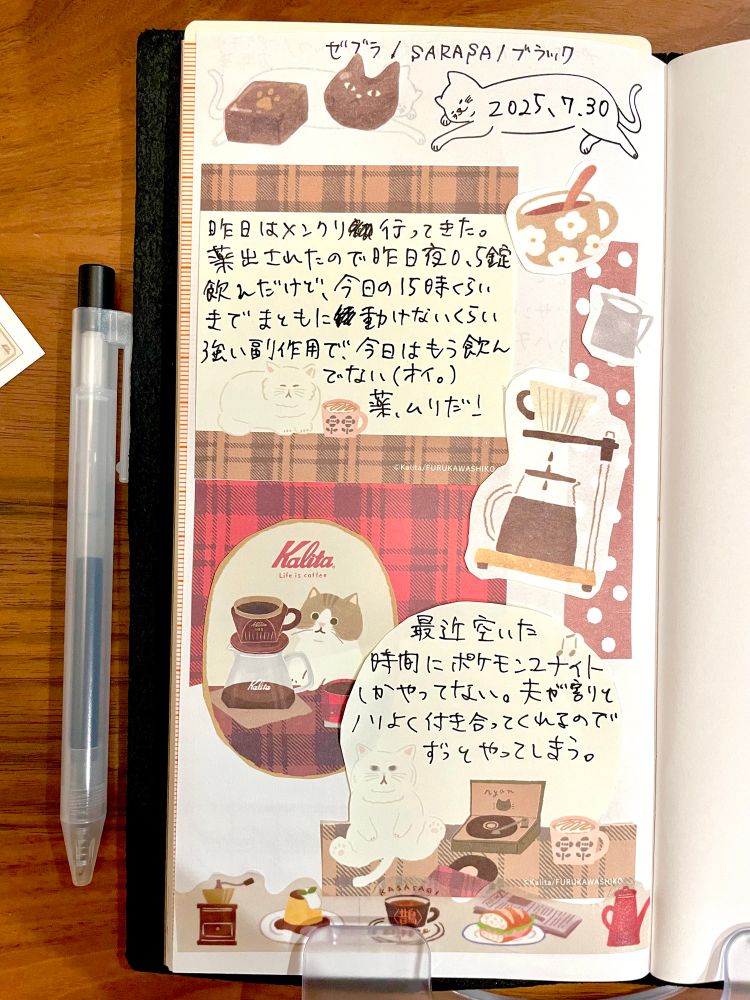 ゼブラ/SARASA/ブラック
2025.7.30
昨日はメンクリ行ってきた。
薬出されたので昨日夜0.5錠
飲んだけど、今日の15時くらい
までまともに動けないくらい
強い副作用で、今日はもう飲ん
でない(オイ。)
薬、ムリだ!
©Kalita/FURUKAWASHIKO
Kalita
Life is coffee
Kalita
最近空いた
時間にポケモンユナイト
しかやってない。夫が割りと
ノリよく付き合ってくれるので
ずっとやってしまう。
nyan
©Kalita/FURUKAWASHIKO
KASASAGI